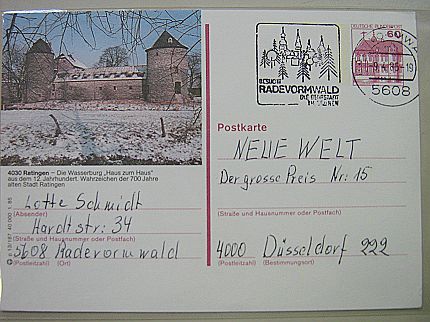 4030 Ratingen – Die Wasserburg „Haus zum Haus"
aus dem 12. Jahrhundert. Wahrzeichen der 700 Jahre
alten Stadt Ratingen
Lotte Schmidt
(Absender)
Hardtstr: 34
(Straße und Hausnummer oder Postfach)
5608 Radevormwald
(Postleitzahl) (Ort)
BESUCHT
RADEVORMWALD
DIE
IM GRÜNEN
DEUTSCHE BUNDESPOST
60
5608
Postkarte
NEUE WELT
Der grosse Preis Nr: 15
(Straße und Hausnummer oder Postfach)
4000 Düsseldorf 222
(Postleitzahl) (Bestimmungsort)